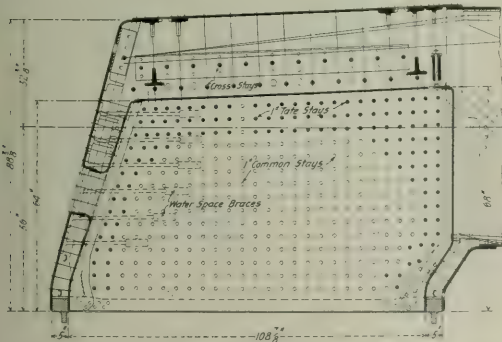 Cross Stays
1" Tate Stays
1" Common Stays
Water Space Braces
64"
68"
5"
108 7/8"
5"